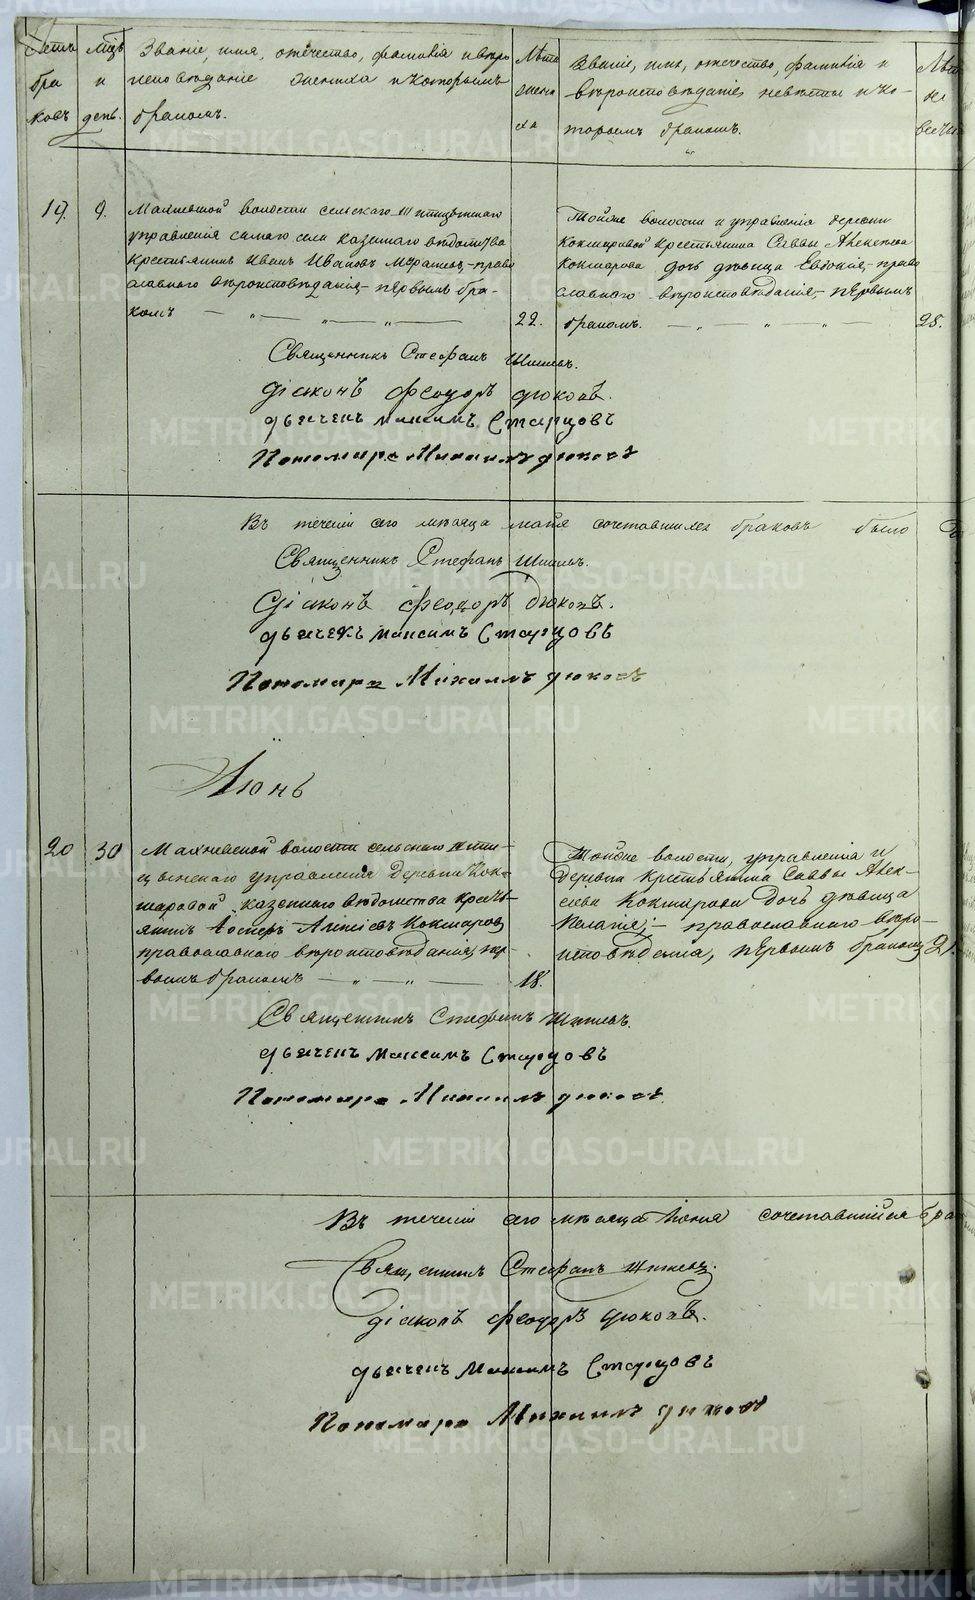 бра и неповѣданіе жениха и которымъ
ковъ день. бракомъ.
Званіе, имя, отчество, фамилія и
вѣроисповѣданіе невѣсты и ко-
торымъ бракомъ.
19. 9.
волости сельскаго
управленія самаго села казеннаго вѣдомства
крестьянинъ Иванъ Ивановъ право
славнаго вѣроисповѣданія, первымъ бра-
комъ 22.
Тойже волости и управленія деревни
Кокшаровой крестьянина Саввы Алексѣева
Кокшарова дочь дѣвица Евдокія, право
славнаго вѣроисповѣданія, первымъ
бракомъ. 25.
Священникъ Стефанъ
Діаконъ Феодоръ Дюковъ.
дьячекъ Максимъ Старцовъ
Пономарь Михаилъ Дюковъ
Въ теченіи сего мѣсяца маія сочетавшихся браковъ было
Священникъ Стефанъ
Діаконъ Феодоръ Дюковъ.
дьячекъ Максимъ Старцовъ
Пономарь Михаилъ Дюковъ
Іюнь
20 30
Махневской волости сельскаго
управленія Деревни Кок-
шаровой казеннаго вѣдомства кресть-
янинъ Кокшаровъ
православнаго вѣроисповѣданія, пер
вымъ бракомъ 18.
Тойже волости, управленія и
деревни крестьянина Саввы Алек-
сѣева Кокшарова дочь дѣвица
Пелагія, православнаго вѣро-
исповѣданія, первымъ бракомъ 21.
Священникъ Стефанъ
дьячекъ Максимъ Старцовъ
Пономарь Михаилъ Дюковъ
Въ теченіи сего мѣсяца Іюня сочетавшихся бра
Священникъ Стефанъ
Діаконъ Феодоръ Дюковъ.
дьячекъ Максимъ Старцовъ
Пономарь Михаилъ Дюковъ
METRIKI.GASO-URAL.RU